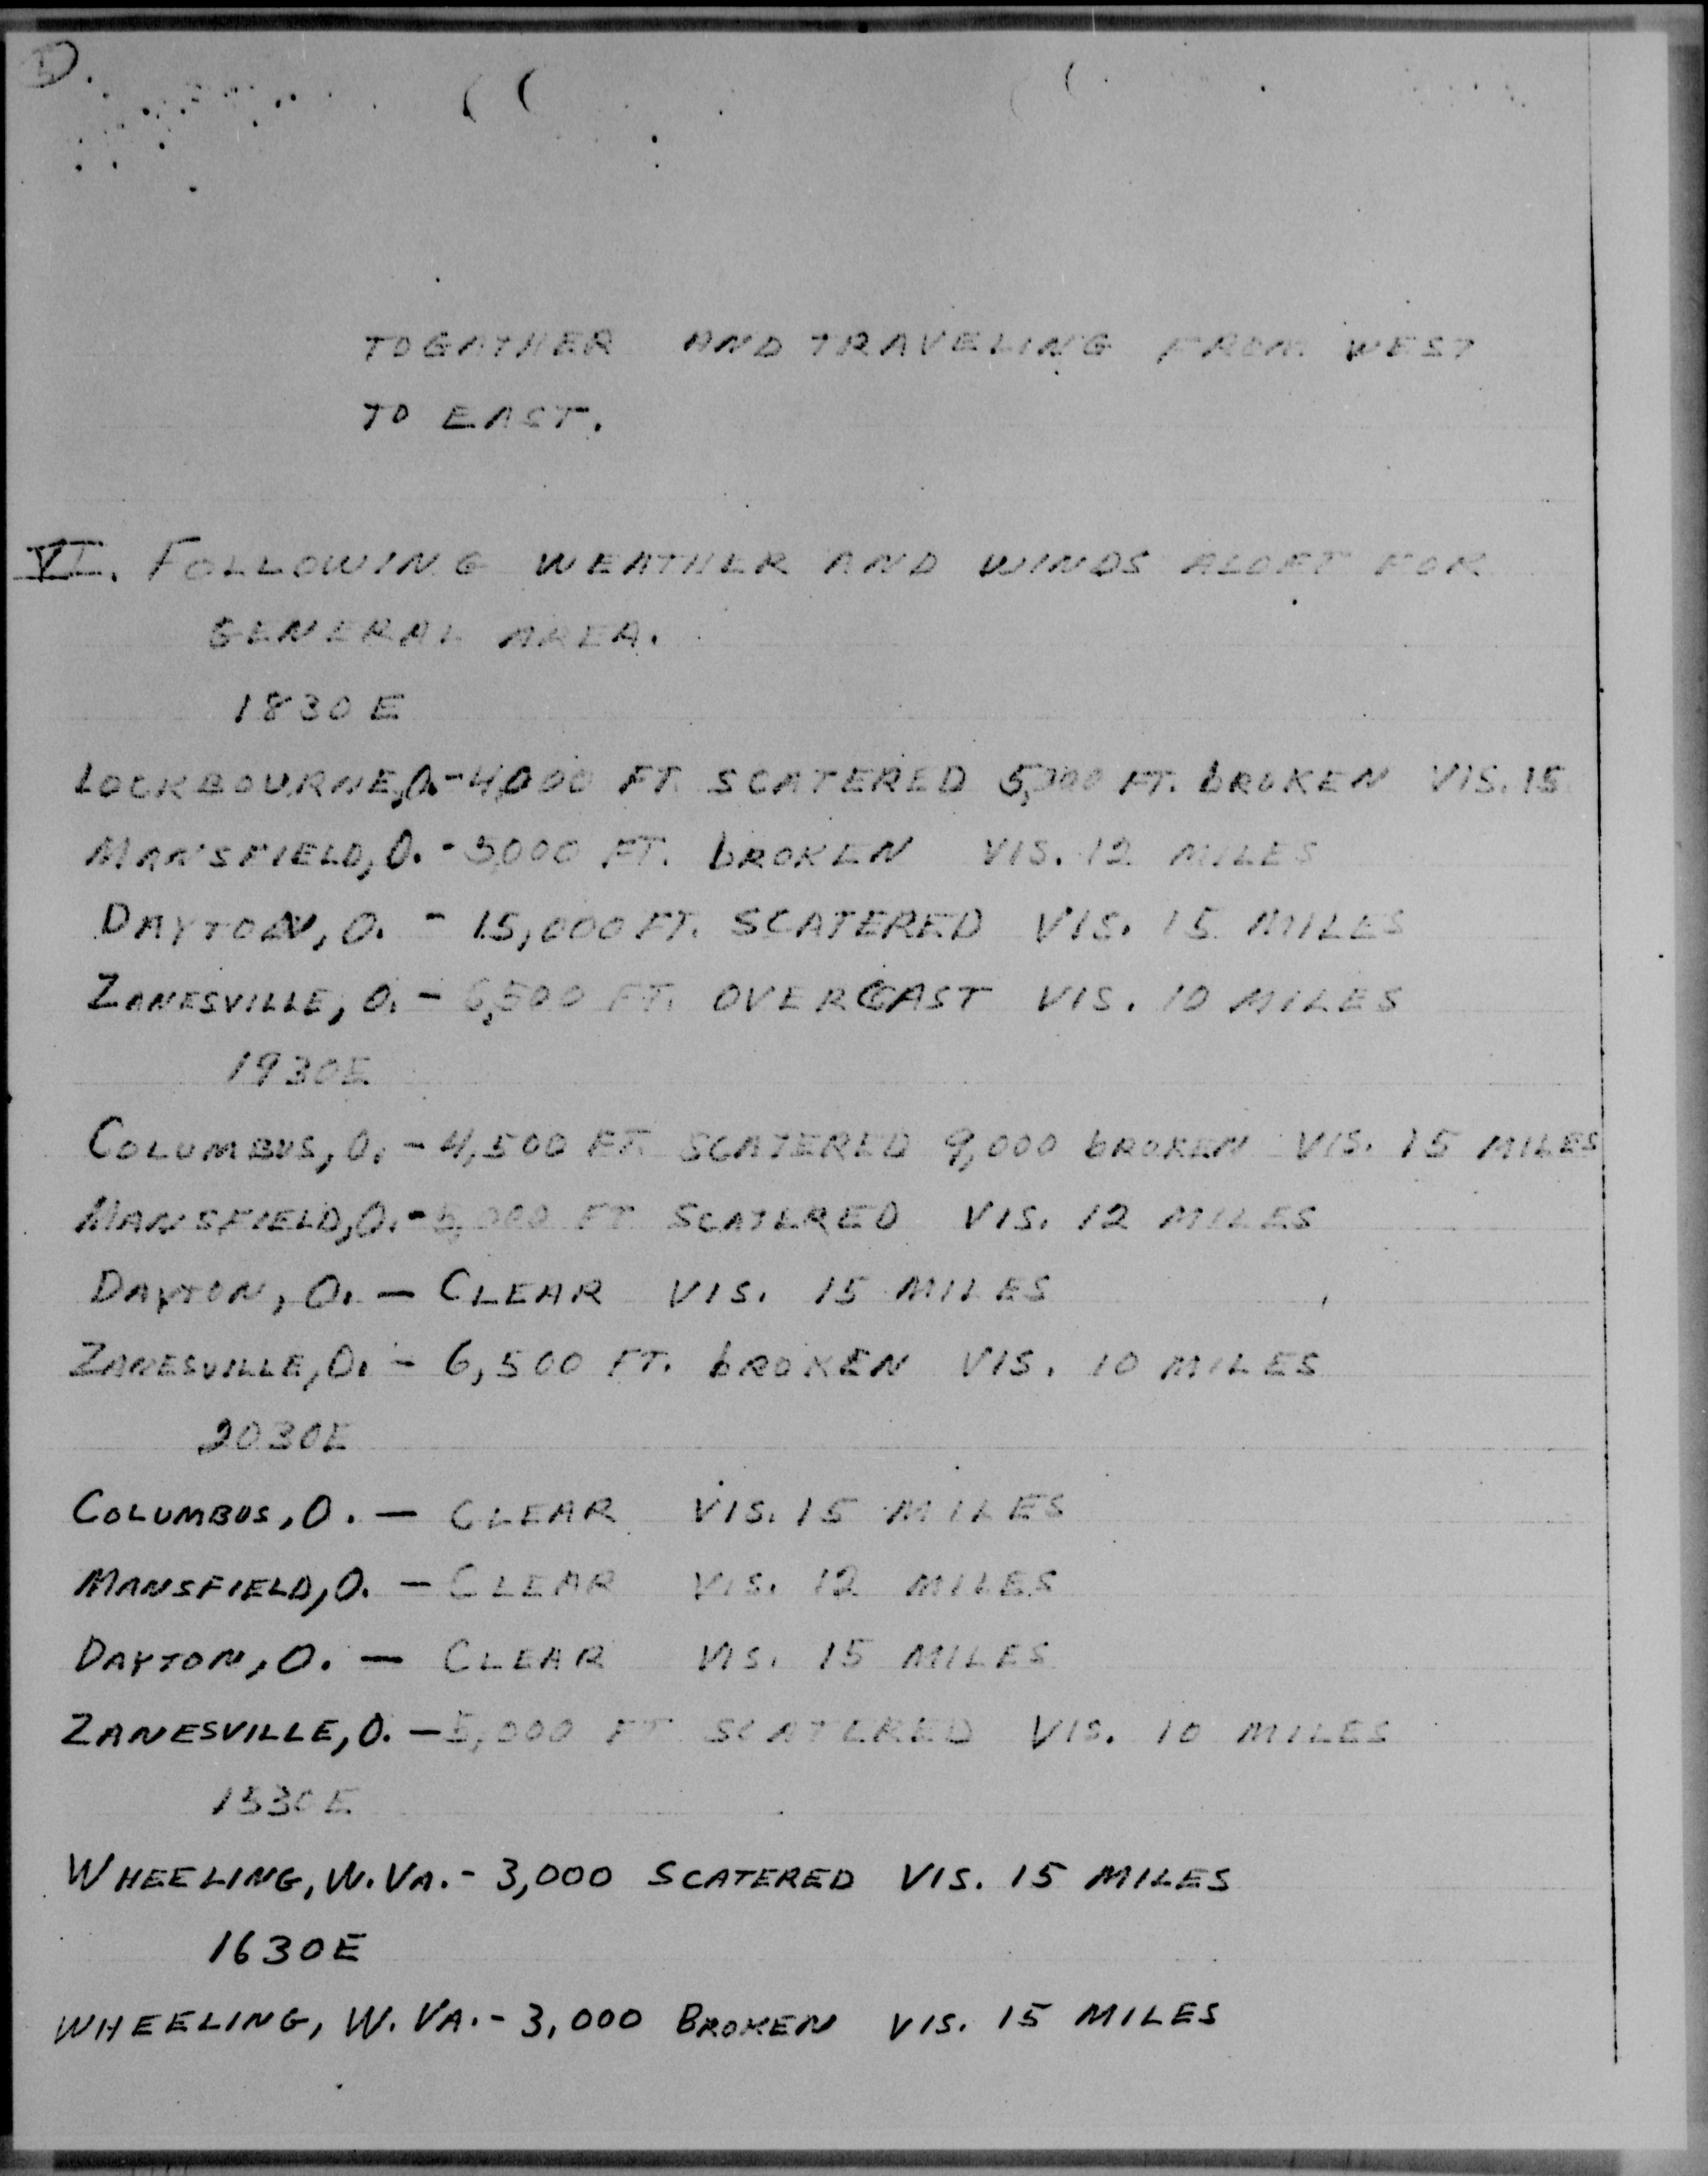 D.
TOGATHER AND TRAVELING FROM WEST
TO EAST.
VI. FOLLOWING WEATHER AND WINDS ALOFT FOR
GENERAL AREA.
1830E
LOCKBOURNE, O. - 4,000 FT. SCATERED FT. BROKEN VIS. 15
MANSFIELD, O. - 5000 FT. BROKEN VIS. 12 MILES
DAYTON, O. - 15,000 FT. SCATERED VIS. 15 MILES
ZANESVILLE, O. - 6,500 FT. OVERCAST VIS. 10 MILES
1930E
COLUMBUS, O. - 4,500 FT. SCATERED 9,000 BROKEN VIS. 15 MILES
MANSFIELD, O. - 5,000 FT SCATERED VIS. 12 MILES
DAYTON, O. - CLEAR VIS. 15 MILES
ZANESVILLE, O. - 6,500 FT. BROKEN VIS. 10 MILES
2030E
COLUMBUS, O. - CLEAR VIS. 15 MILES
MANSFIELD, O. - CLEAR VIS. 12 MILES
DAYTON, O. - CLEAR VIS. 15 MILES
ZANESVILLE, O. - 5,000 FT SCATERED VIS. 10 MILES
1530E
WHEELING, W. VA. - 3,000 SCATERED VIS. 15 MILES
1630E
WHEELING, W. VA. - 3,000 BROKEN VIS. 15 MILES